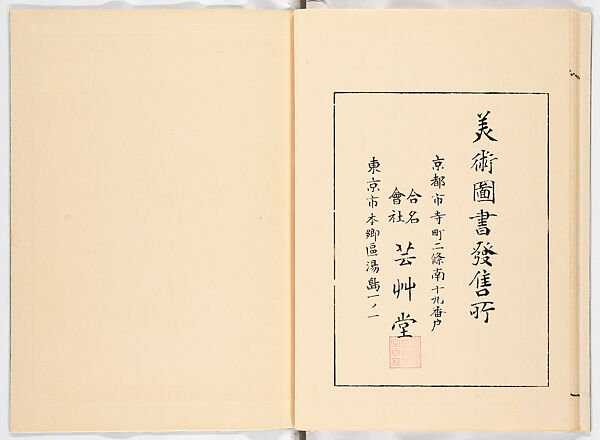 美術圖書發售所
京都市寺町二條南十九番戸
合名會社 芸艸堂
東京市本鄉區湯島一ノ一